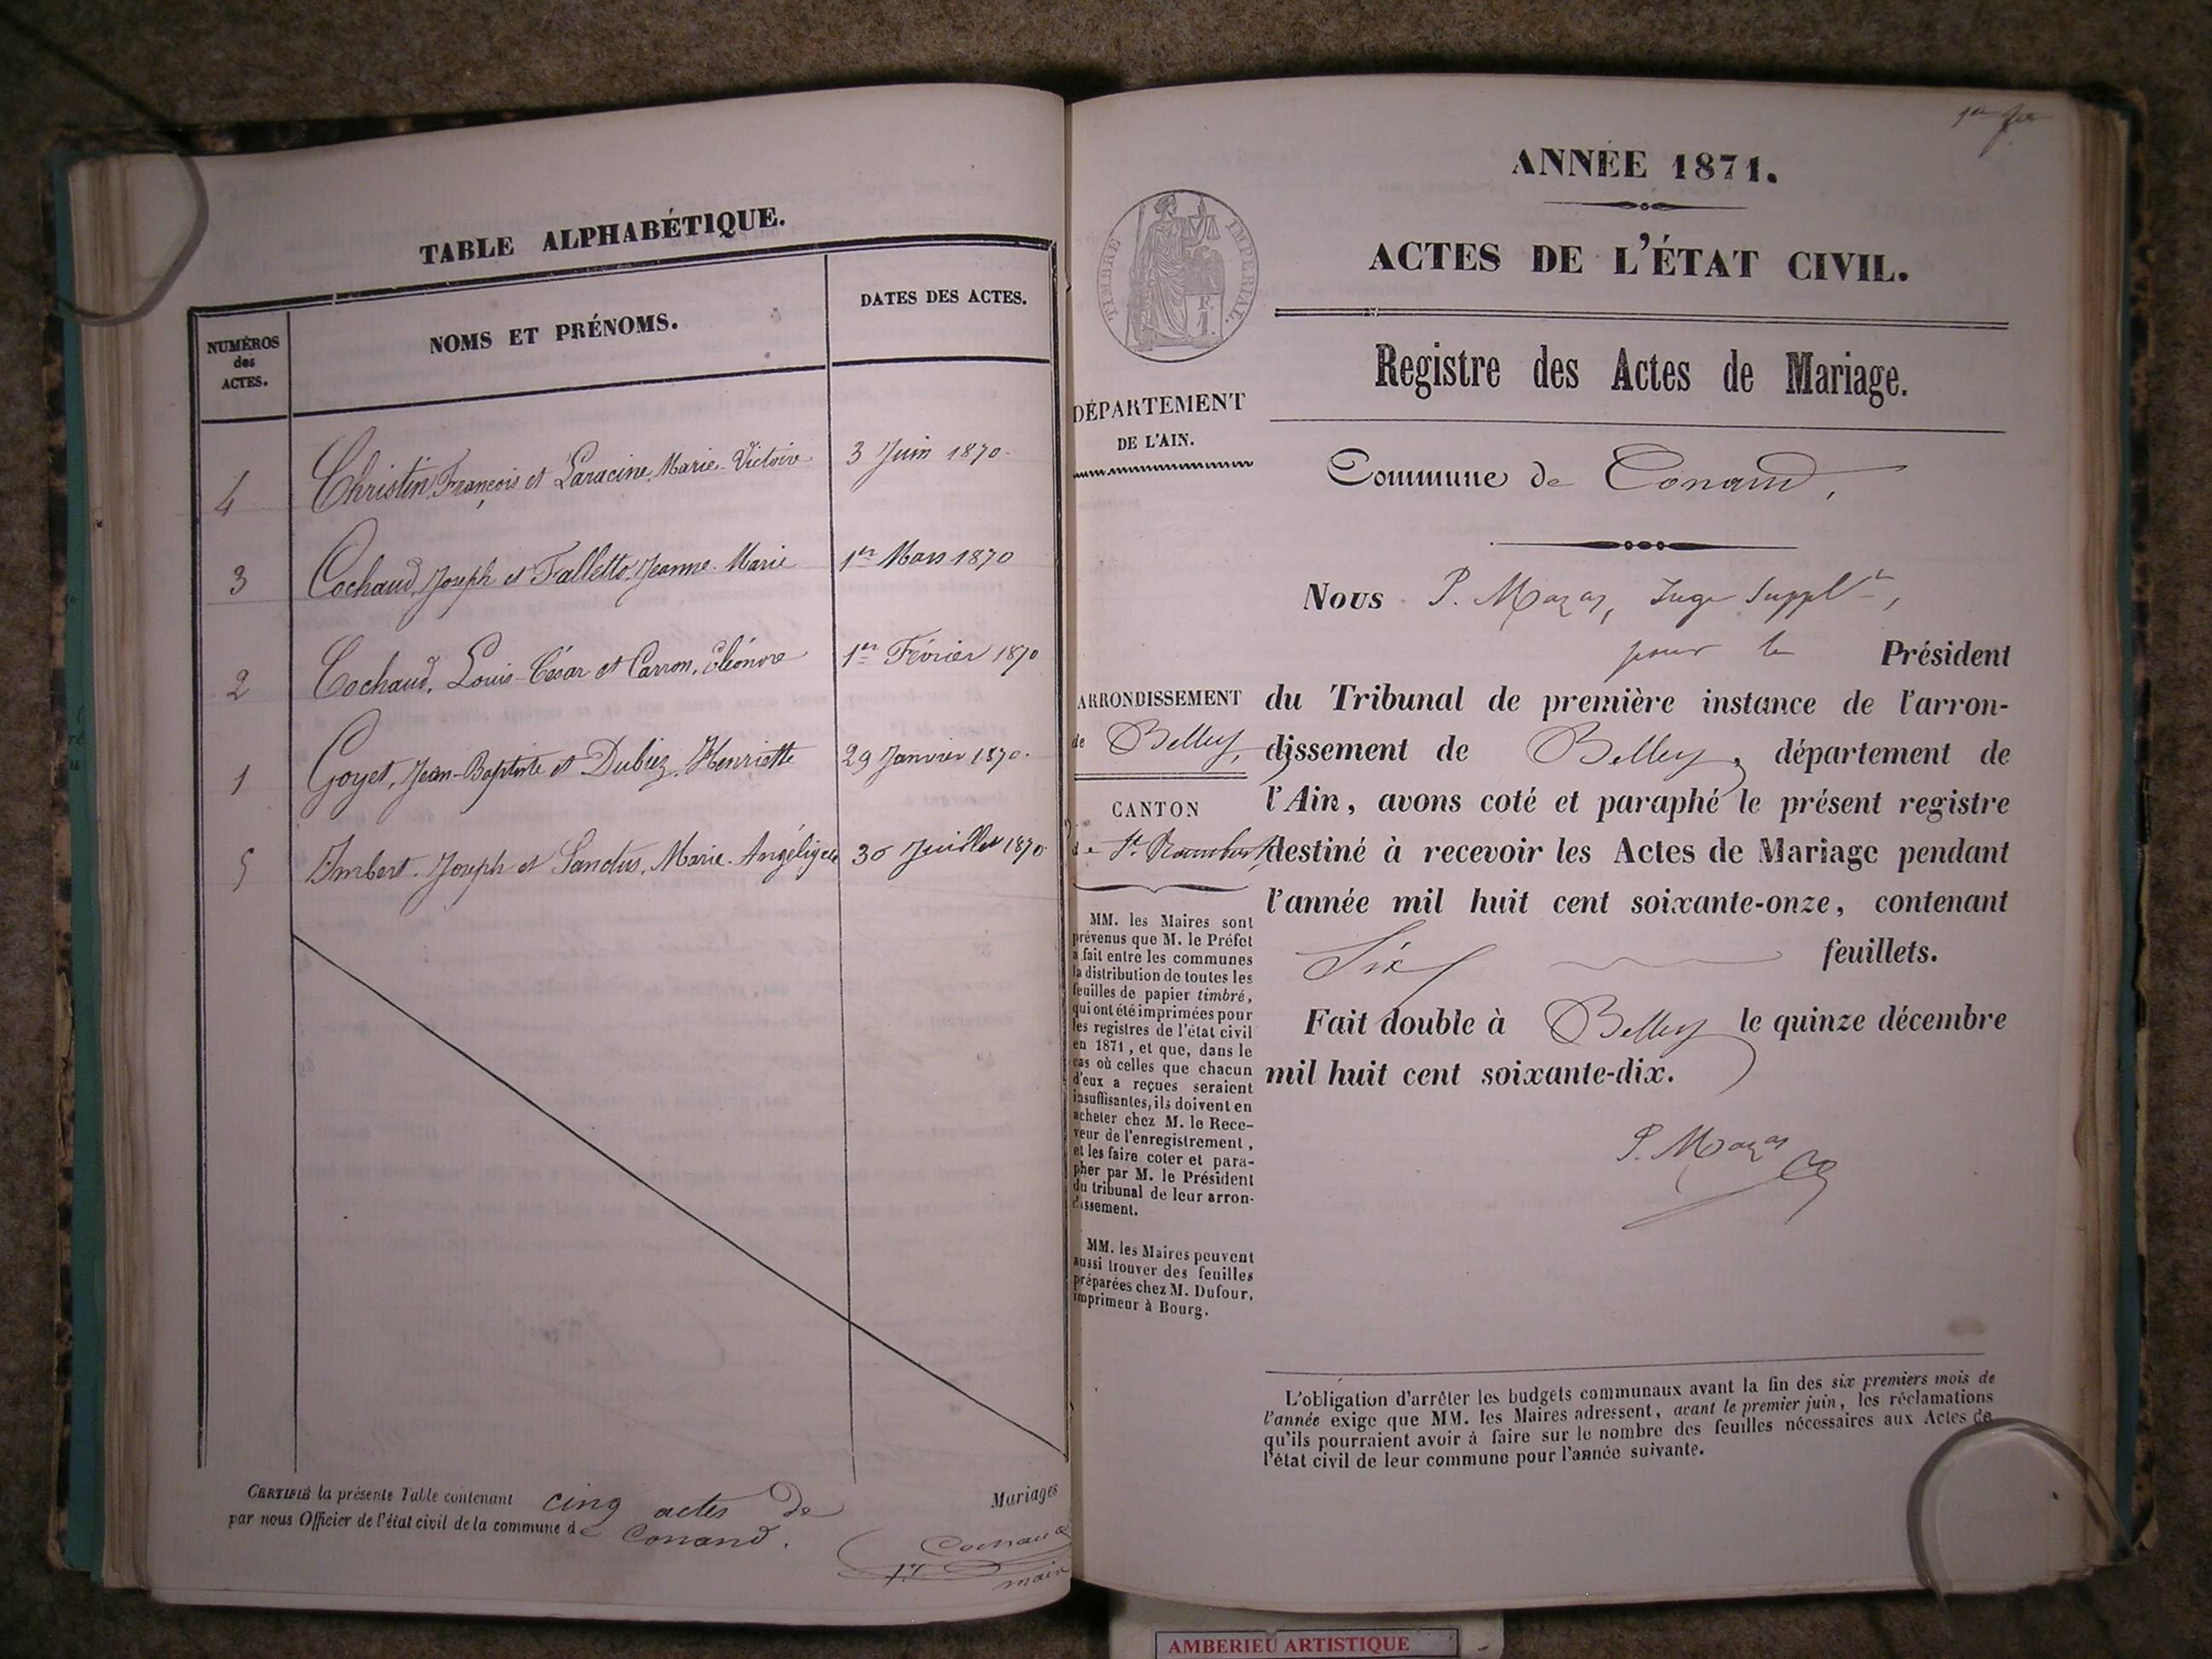 TABLE ALPHABÉTIQUE.
NUMÉROS
des
ACTES.
NOMS ET PRÉNOMS.
DATES DES ACTES.
4 Christin, François et Laracine, Marie-Victoire 3 Juin 1870.
3 Cochaud, Joseph et Falletto, Jeanne-Marie 1er Mars 1870
2 Cochaud, Louis-César et Carron, Eléonore 1er Février 1870
1 Goyet, Jean-Baptiste et Dubiez, Henriette 29 Janvier 1870.
5 Imbert, Joseph et Sanctus, Marie-Angélique 30 Juillet 1870
CERTIFIÉ la présente Table contenant cinq actes de Mariages
par nous Officier de l'état civil de la commune de Conand.
Cochaud
maire
ANNÉE 1871.
ACTES DE L'ÉTAT CIVIL.
TIMBRE IMPERIAL.
Registre des Actes de Mariage.
DÉPARTEMENT
DE L'AIN.
Commune de Conand,
Nous P. Mazas, Juge Supplt,
pour le Président
du Tribunal de première instance de l'arron-
dissement de Belley, département de
l'Ain, avons coté et paraphé le présent registre
destiné à recevoir les Actes de Mariage pendant
l'année mil huit cent soixante-onze, contenant
Six feuillets.
Fait double à Belley le quinze décembre
mil huit cent soixante-dix.
P. Mazas
ARRONDISSEMENT
de Belley,
CANTON
de St. Rambert,
MM. les Maires sont
prévenus que M. le Préfet
a fait entre les communes
la distribution de toutes les
feuilles de papier timbré,
qui ont été imprimées pour
les registres de l'état civil
en 1871, et que, dans le
cas où celles que chacun
d'eux a reçues seraient
insuffisantes, ils doivent en
acheter chez M. le Rece-
veur de l'enregistrement,
et les faire coter et para-
pher par M. le Président
du tribunal de leur arron-
dissement.
MM. les Maires peuvent
aussi trouver des feuilles
préparées chez M. Dufour,
imprimeur à Bourg.
L'obligation d'arrêter les budgets communaux avant la fin des six premiers mois de
l'année exige que MM. les Maires adressent, avant le premier juin, les réclamations
qu'ils pourraient avoir à faire sur le nombre des feuilles nécessaires aux Actes de
l'état civil de leur commune pour l'année suivante.
AMBERIEU ARTISTIQUE